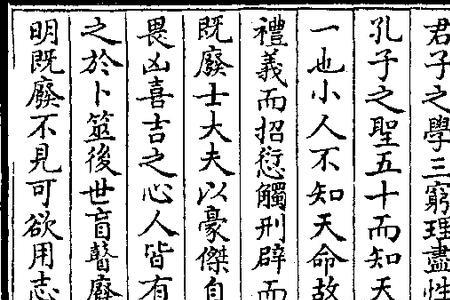 君子之學三窮理盡性
孔子之聖五十而知天
一也小人不知天命故
禮義而招愆觸刑辟而
既廢士大夫以豪傑自
畏凶喜吉之心人皆有
之於卜筮後世盲瞽廢
明既廢不見可欲用志